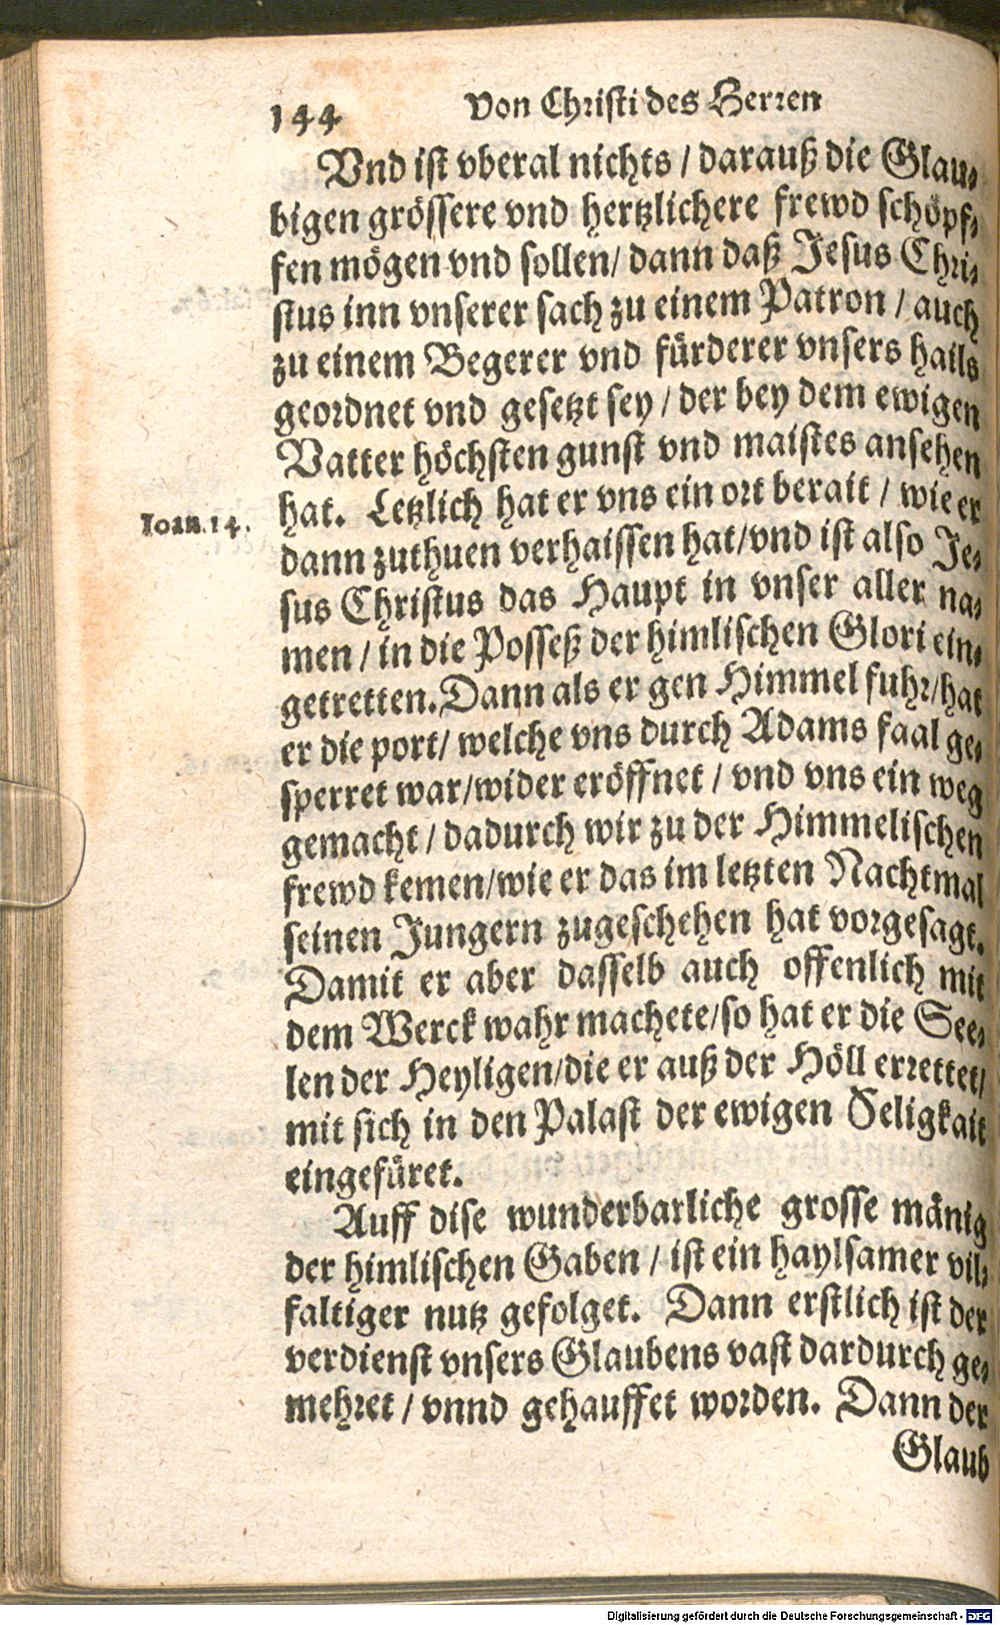 144 Von Christi des Herren
Vnd ist vberal nichts / darauß die Glau-
bigen grössere vnd hertzlichere frewd schöpf-
fen mögen vnd sollen / dann daß Jesus Chri-
stus inn vnserer sach zu einem Patron / auch
zu einem Begerer vnd fürderer vnsers hails
geordnet vnd gesetzt sey / der bey dem ewigen
Vatter höchsten gunst vnd maistes ansehen
hat. Letzlich hat er vns ein ort berait / wie er
Ioan. 14.
dann zuthuen verhaissen hat / vnd ist also Je-
sus Christus das Haupt in vnser aller na-
men / in die Posseß der himlischen Glori ein-
getretten. Dann als er gen Himmel fuhr / hat
er die port / welche vns durch Adams faal ge-
sperret war / wider eröffnet / vnd vns ein weg
gemacht / dadurch wir zu der Himmelischen
frewd kemen / wie er das im letzten Nachtmal
seinen Jungern zugeschehen hat vorgesagt.
Damit er aber dasselb auch offenlich mit
dem Werck wahr machete / so hat er die See-
len der Heyligen / die er auß der Höll errettet /
mit sich in den Palast der ewigen Seligkait
eingefüret.
Auff dise wunderbarliche grosse mänig
der himlischen Gaben / ist ein haylsamer vil-
faltiger nutz gefolget. Dann erstlich ist der
verdienst vnsers Glaubens vast dardurch ge-
mehret / vnnd gehauffet worden. Dann der
Glaub
Digitalisierung gefördert durch die Deutsche Forschungsgemeinschaft - DFG